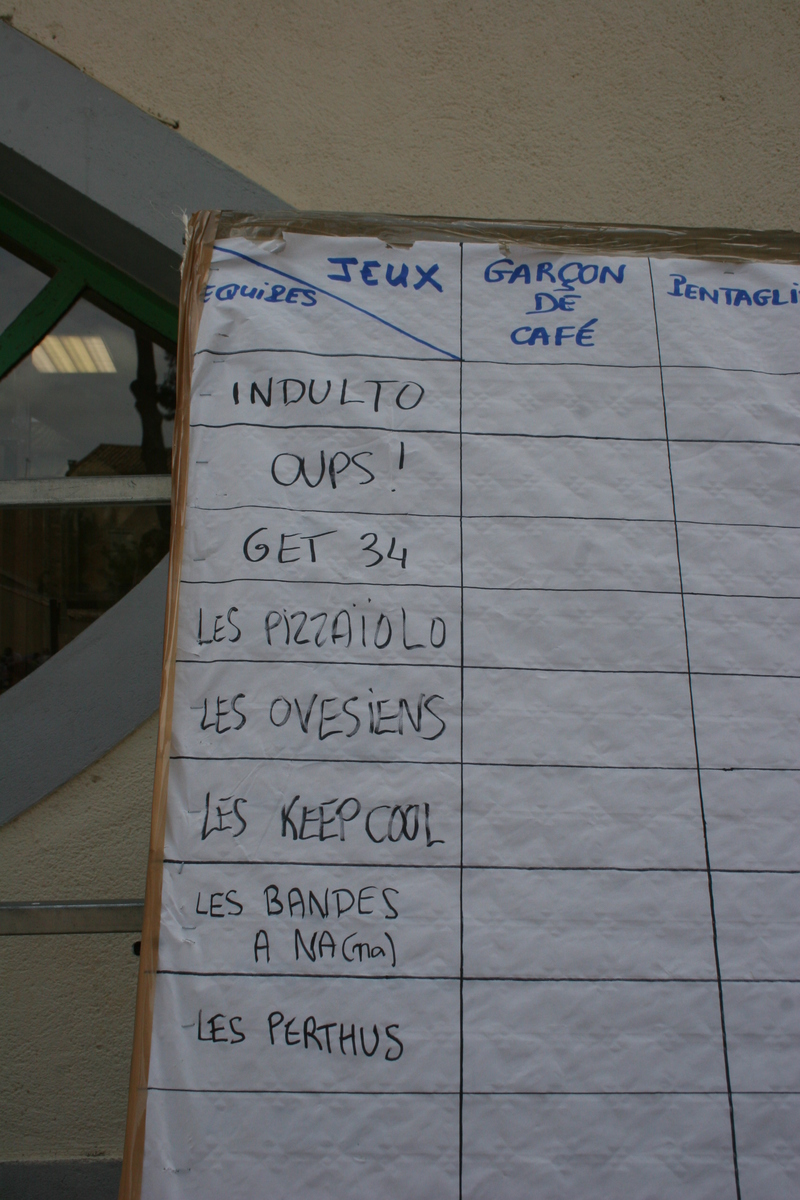 JEUX
EQUIPES
GARÇON
DE
CAFÉ
PENTAGLI
INDULTO
OUPS !
GET 34
LES PIZZAÏOLO
LES OVESIENS
LES KEEPCOOL
LES BANDES
A NA(na)
LES PERTHUS